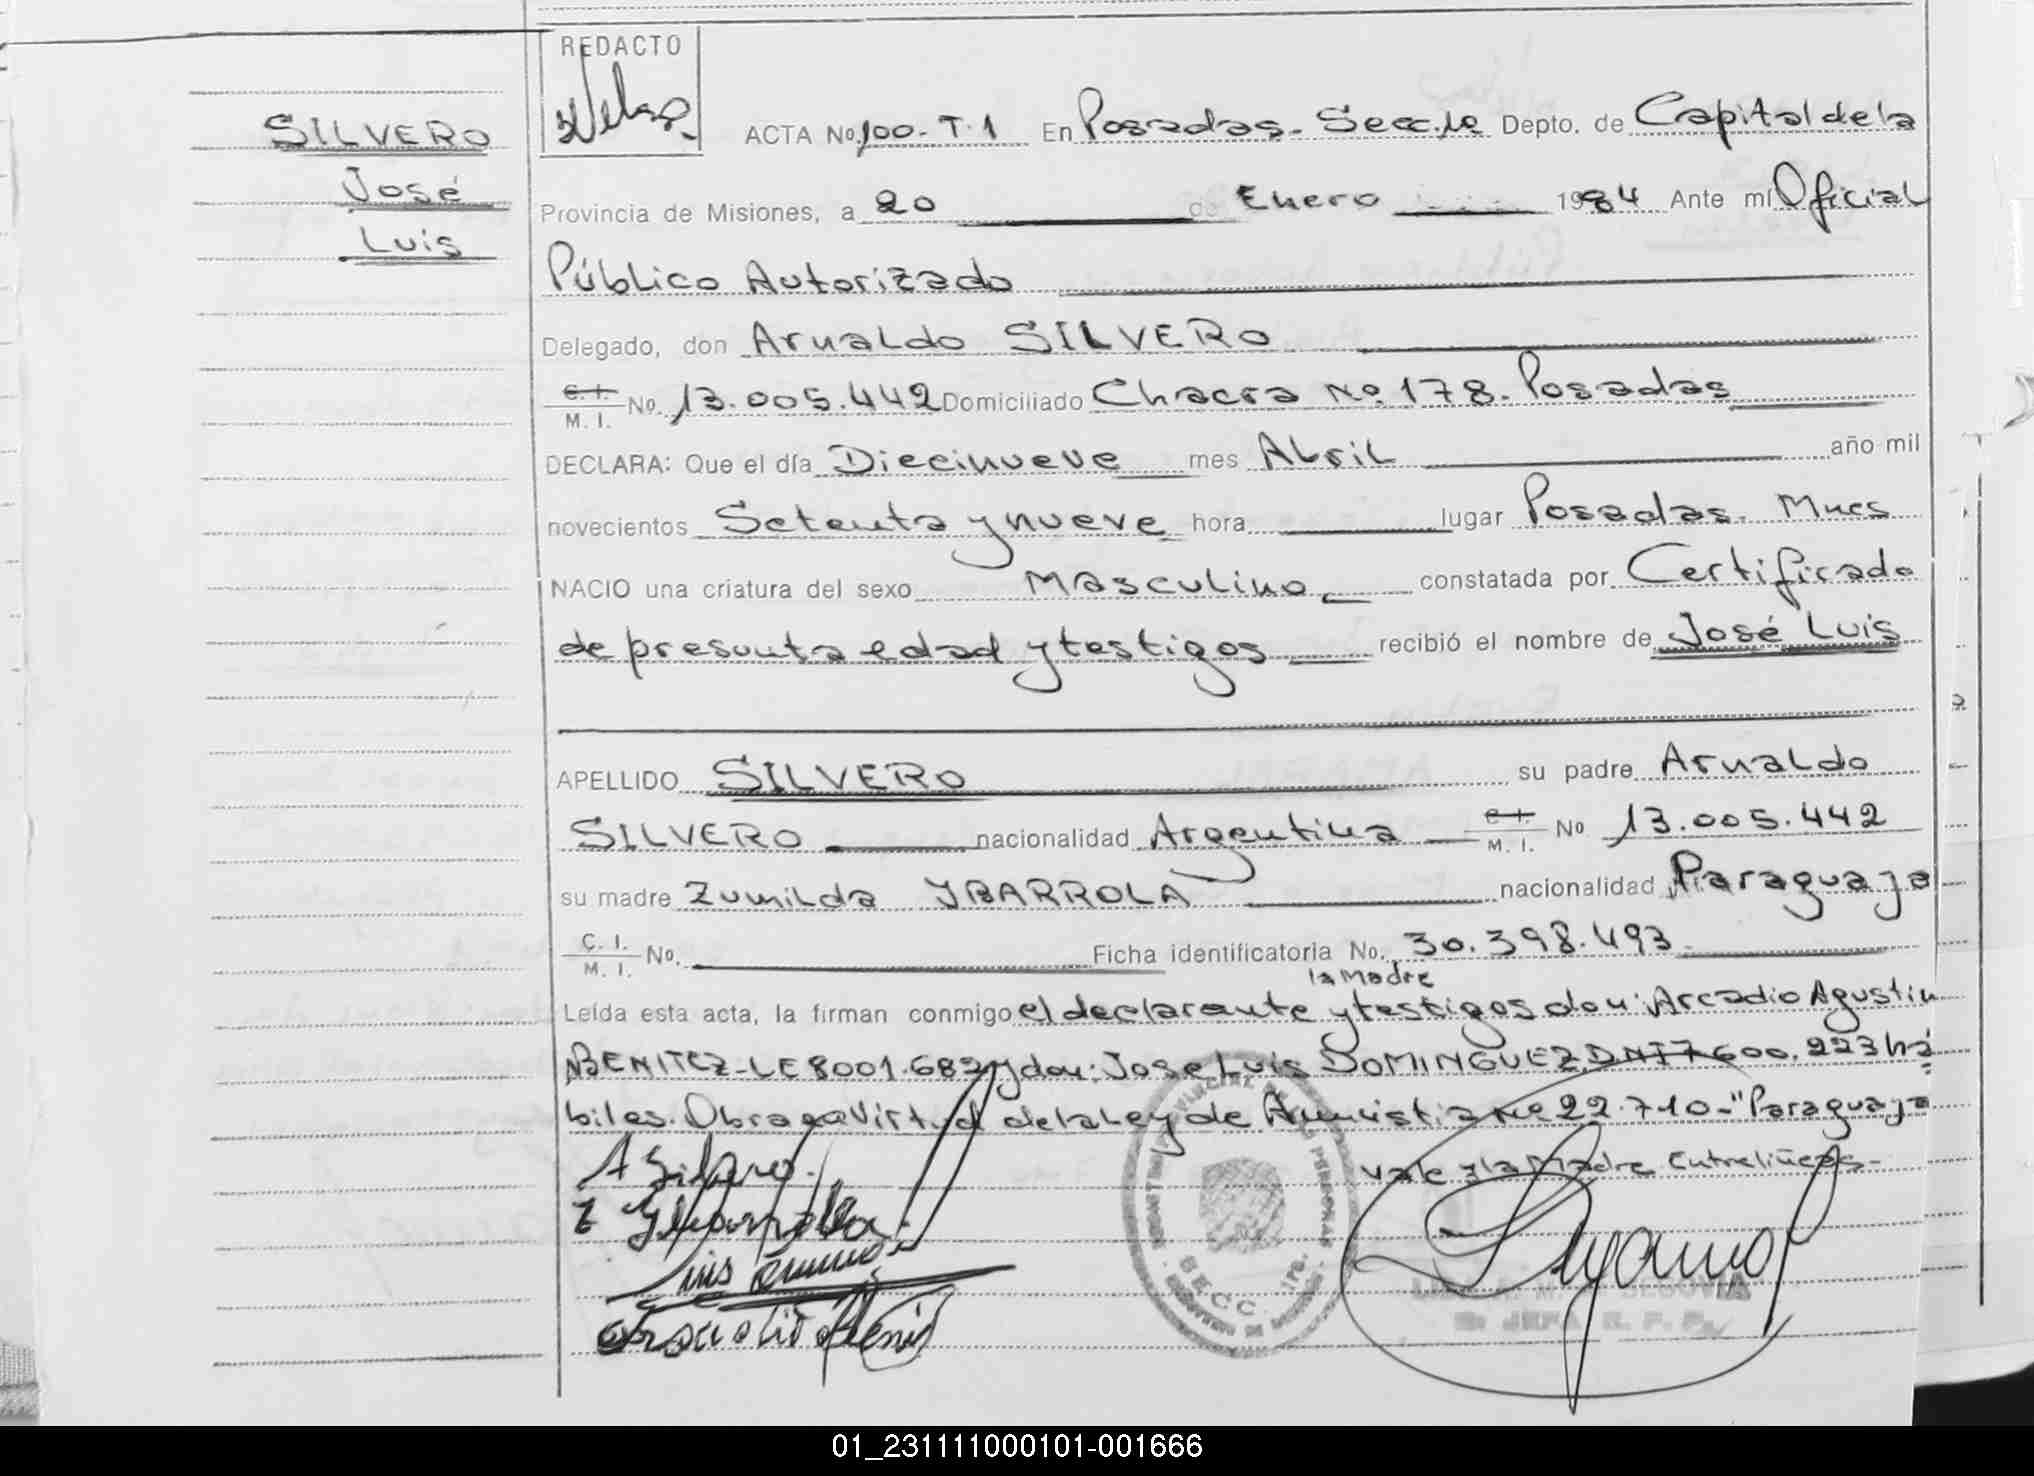 REDACTO
SILVERO
José
Luis
ACTA No. 100 - T. 1 En Posadas. Secc. 1a Depto. de Capital de la
Provincia de Misiones, a 20 de Enero 1984 Ante mí Oficial
Público Autorizado
Delegado, don Arnaldo SILVERO
C. I. / M. I. No. 13.005.442 Domiciliado Chacra No. 178. Posadas
DECLARA: Que el día Diecinueve mes Abril año mil
novecientos Setenta y nueve hora lugar Posadas. Mnes
NACIO una criatura del sexo Masculino constatada por Certificado
de presunta edad y testigos recibió el nombre de José Luis
APELLIDO SILVERO su padre Arnaldo
SILVERO nacionalidad Argentina C. I. / M. I. No 13.005.442
su madre Zunilda YBARROLA nacionalidad Paraguaja
C. I. / M. I. No. Ficha identificatoria No. 30.398.493
la Madre
Leída esta acta, la firman conmigo el declarante y testigos don: Arcadio Agustin
BENITEZ - LE 8001.682 y don: Jose Luis DOMINGUEZ DNI 7600.223 há
biles. Obra en Virtud de la Ley de Amnistia No 22.710 - "Paraguaja
Vale y la Madre Entrelíneas -
A Silvero.
Z Ybarrola
SECC. 1ra.
01_231111000101-001666